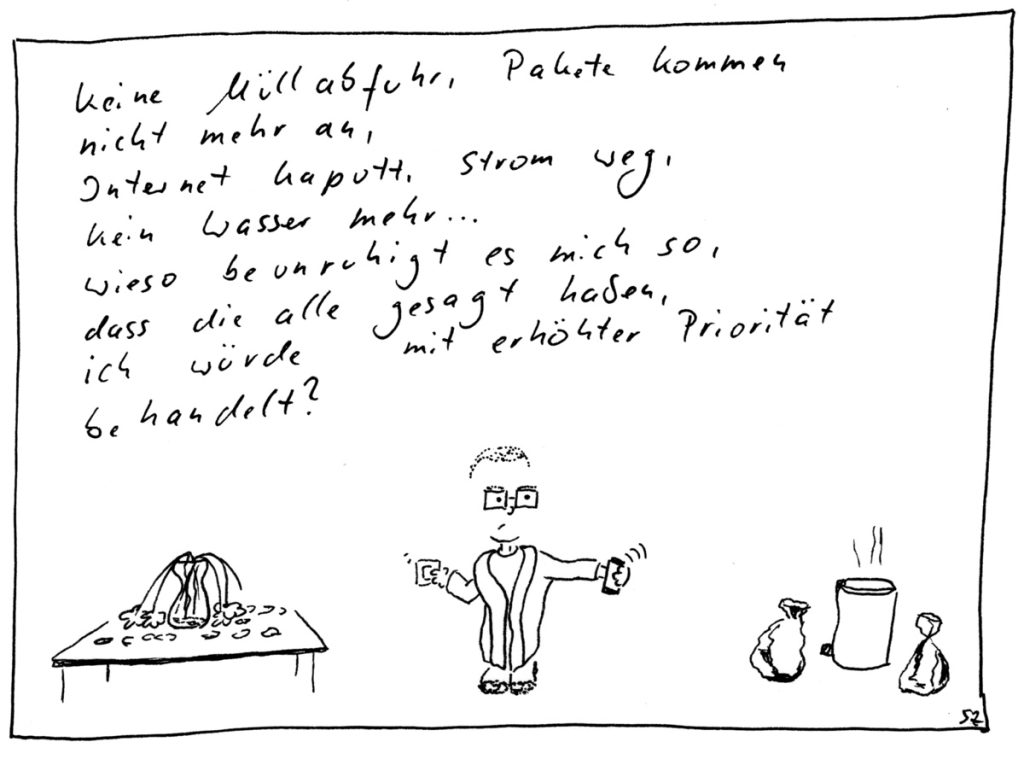 keine Müllabfuhr, Pakete kommen
nicht mehr an,
Internet kaputt, Strom weg,
kein Wasser mehr...
wieso beunruhigt es mich so,
dass die alle gesagt haben,
ich würde mit erhöhter Priorität
behandelt?
SZ